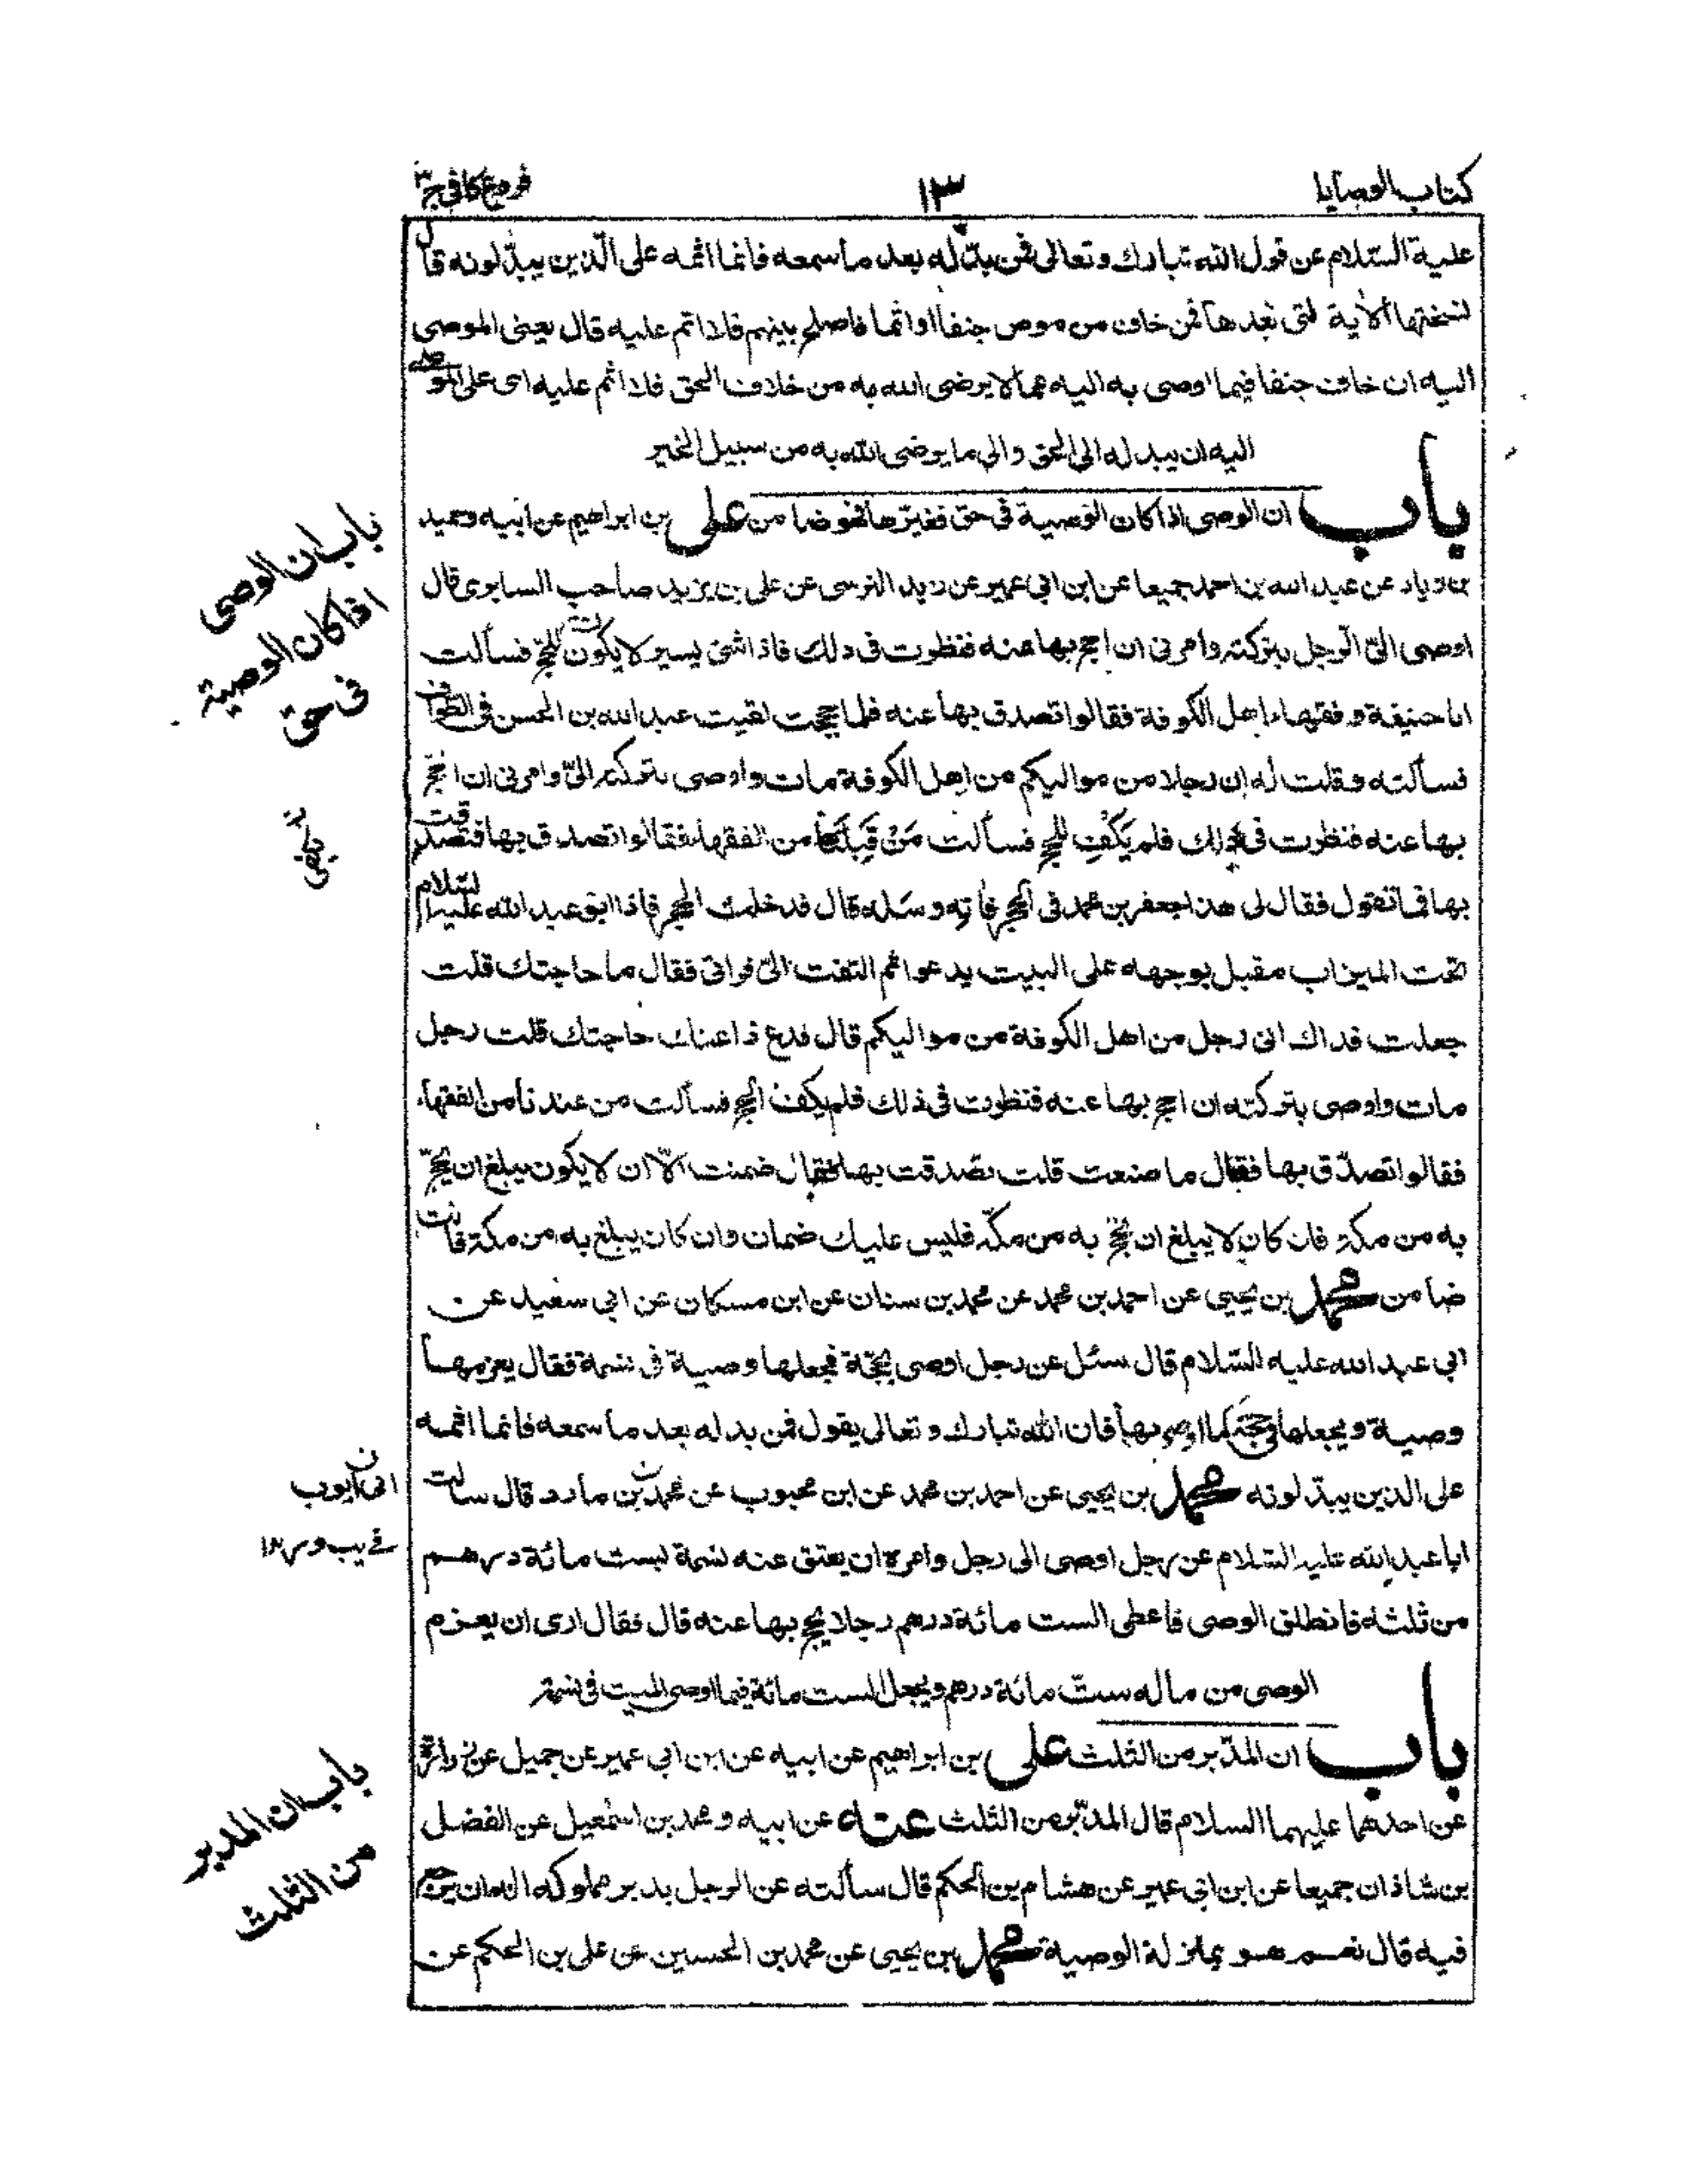 كتاب الوصايا
١٣
فروع كافى ج ٣
عليه السّلام عن قول الله تبارك وتعالى فمن بدّله بعد ما سمعه فانما اثمه على الّذين يبدّلونه قال
نسختها الاية التى بعدها فمن خاف من موص جنفا او اثما فاصلح بينهم فلا اثم عليه قال يعنى الموصى
اليه ان خاف جنفا فيما اوصى به اليه مما لا يرضى الله به من خلاف الحق فلا اثم عليه اى على الموصى
اليه ان يبدله الى الحق والى ما يرضى الله به من سبيل الخير
باب ان الوصى اذا كان الوصية فى حق فغيّرها فهو ضامن على بن ابراهيم عن ابيه وحميد
بن زياد عن عبد الله بن احمد جميعا عن ابن ابى عمير عن زيد النرسى عن على بن يزيد صاحب السابرى قال
اوصى الىّ الرجل بتركته وامرنى ان احج بها عنه فنظرت فى ذلك فاذا شئ يسير لا يكون للحج فسألت
ابا حنيفة وفقهاء اهل الكوفة فقالوا تصدق بها عنه فلما حججت لقيت عبد الله بن الحسن فى الطواف
فسألته وقلت له ان رجلا من مواليكم من اهل الكوفة مات واوصى بتركته الىّ وامرنى ان احج
بها عنه فنظرت فى ذلك فلم يكف للحج فسألت من قبلنا من الفقهاء فقالوا تصدق بها فتصدقت
بها فما تقول فقال لى هذا جعفر بن محمد فى الحجر فأته وسله قال فدخلت الحجر فاذا ابو عبد الله عليه السّلام
تحت الميزاب مقبل بوجهه على البيت يدعوا ثم التفت الىّ فرانى فقال ما حاجتك قلت
جعلت فداك انى رجل من اهل الكوفة من مواليكم قال فدع ذا عنك حاجتك قلت رجل
مات واوصى بتركته ان احج بها عنه فنظرت فى ذلك فلم يكف للحج فسألت من عندنا من الفقهاء
فقالوا تصدّق بها فقال ما صنعت قلت تصدقت بها فقال ضمنت الّا ان لا يكون يبلغ ان يحجّ
به من مكة فان كان لا يبلغ ان يحج به من مكّة فليس عليك ضمان وان كان يبلغ به من مكة فانت
ضامن محمد بن يحيى عن احمد بن محمد عن محمد بن سنان عن ابن مسكان عن ابى سعيد عن
ابى عبد الله عليه السّلام قال سئل عن رجل اوصى بحجّة فجعلها وصية فى نسمة فقال يغرمها
وصية ويجعلها فى حجّة كما اوصى بها فان الله تبارك وتعالى يقول فمن بدله بعد ما سمعه فانما اثمه
على الذين يبدّلونه محمد بن يحيى عن احمد بن محمد عن ابن محبوب عن محمد بن مارد قال سالت
ابا عبد الله عليه السّلام عن رجل اوصى الى رجل وامره ان يعتق عنه نسمة بست مائة درهم
من ثلثه فانطلق الوصى فاعطى الست مائة درهم رجلا يحج بها عنه قال فقال ارى ان يغرم
الوصى من ماله ستّ مائة درهم ويجعل الست مائة فيما اوصى الميت فى نسمة
باب ان المدّبر من الثلث على بن ابراهيم عن ابيه عن ابن ابى عمير عن جميل عن زرارة
عن احدهما عليهما السلام قال المدّبر من الثلث عنه عن ابيه ومحمد بن اسمعيل عن الفضل
بن شاذان جميعا عن ابن ابى عمير عن هشام بن الحكم قال سألته عن الرجل يدبر مملوكه اله ان يرجع
فيه قال نعم هو بمنزلة الوصية محمد بن يحيى عن محمد بن الحسين عن على بن الحكم عن
باب ان الوصى
اذا كان الوصية
فى حق
يكفى
ابى ايوب
باب ان المدبر
من الثلث